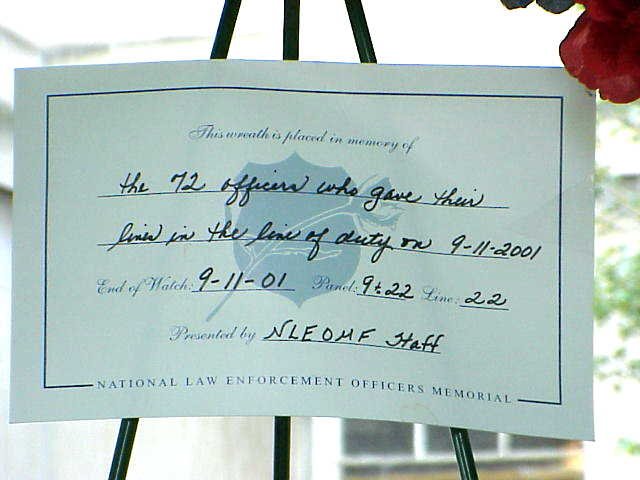 This wreath is placed in memory of
the 72 officers who gave their
lives in the line of duty on 9-11-2001
End of Watch: 9-11-01 Panel: 9+22 Line: 22
Presented by NLEOMF Staff
NATIONAL LAW ENFORCEMENT OFFICERS MEMORIAL